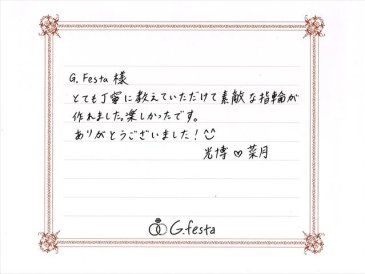 G.Festa 様
とても丁寧に教えていただけて素敵な指輪が
作れました。楽しかったです。
ありがとうございました！^^
光博 ♡ 菜月
G.festa